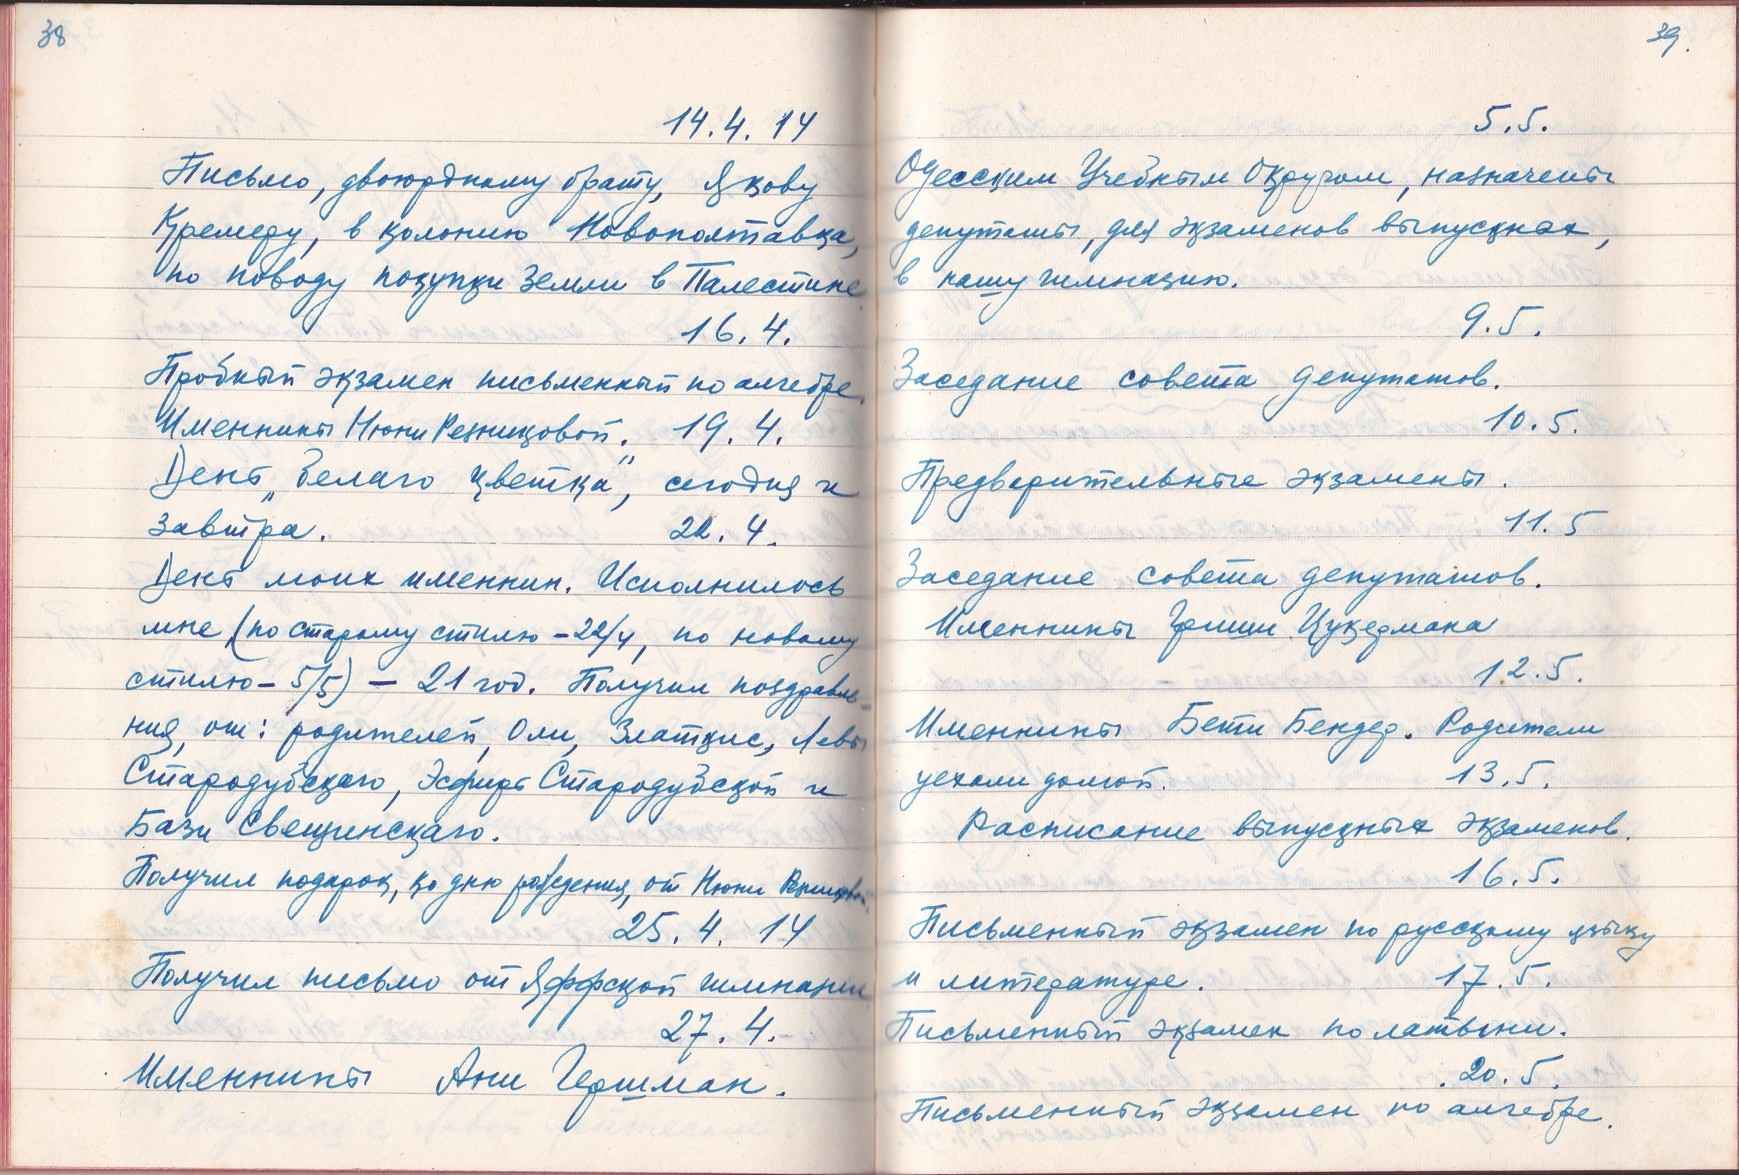 38
14.4.14
Письмо, двоюрдному брату, Якову
Кремеру, в колонию Новополтавка,
по поводу покупки Земли в Палестине
16.4.
Пробный экзамен письменный по алгебре.
Именины Нюни Резниковой. 19.4.
День „Белаго Цветка", сегодня и
завтра. 22.4.
День моих именин. Исполнилось
мне (по старому стилю – 22/4, по новому
стилю – 5/5) – 21 год. Получил поздравле-
ния, от: родителей, Оли, Златкис, Левы
Стародубскаго, Эсфирь Стародубской и
Бази Свещинскаго.
Получил подарок, ко дню рождения, от Нюни
25.4.14
Получил письмо от Яффской гимназии
27.4.
Именины Ани Гершман.
39.
5.5.
Одесским Учебным Округом, назначены
депутаты, для экзаменов выпускных,
в нашу гимназию.
9.5.
Заседание совета депутатов.
10.5.
Предварительные экзамены.
11.5
Заседание совета депутатов.
Именины Гриши Цукермана
12.5.
Именины Бети Бендер. Родители
уехали домой. 13.5.
Расписание выпускных экзаменов.
16.5.
Письменный экзамен по русскому языку
и литературе. 17.5.
Письменный экзамен по латыни.
20.5.
Письменный экзамен по алгебре.